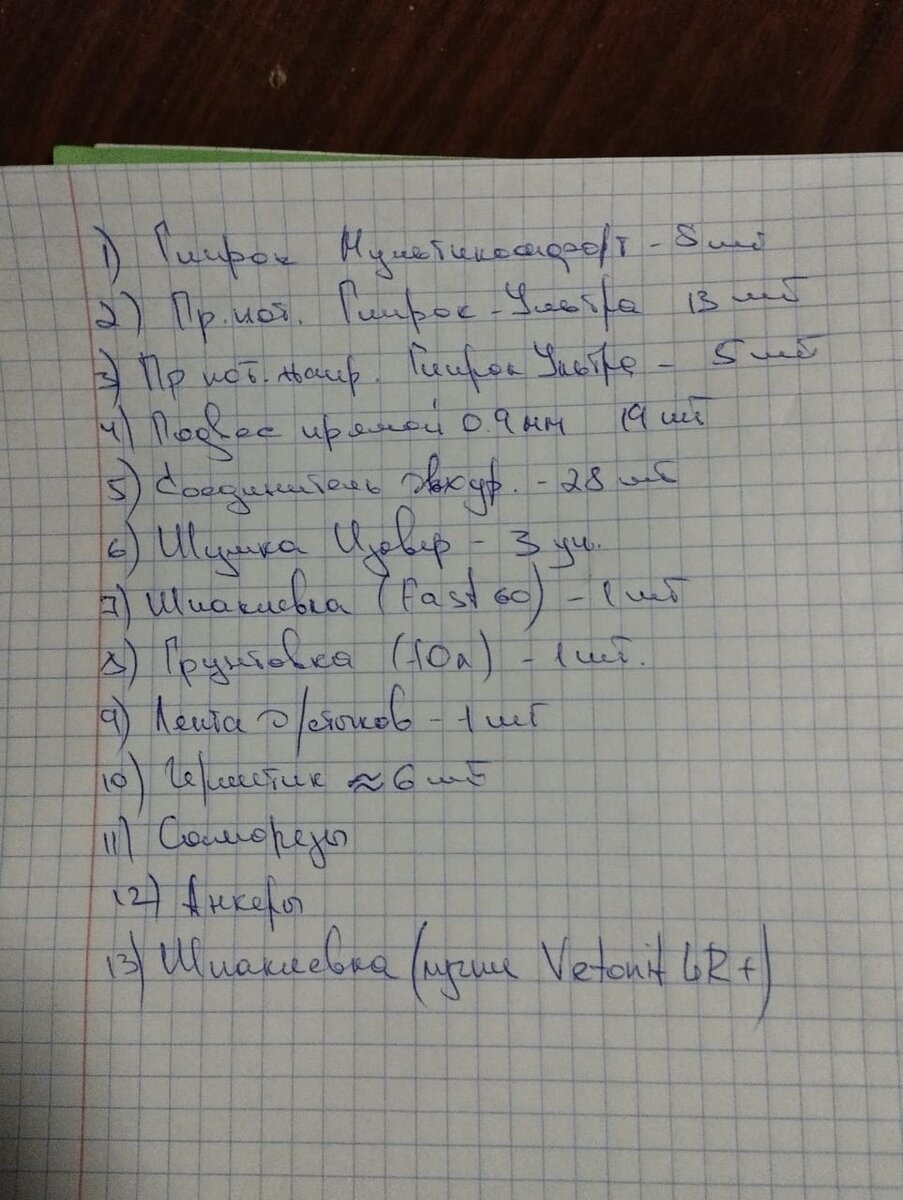 1) Гипрок Мультикомфорт - 8 шт
2) Пр. пот. Гипрок - Ультра 13 шт
3) Пр пот. напр. Гипрок Ультра - 5 шт
4) Подвес прямой 0.9 мм 19 шт
5) Соединитель двухур. - 28 шт
6) Шумка Изовер - 3 уп.
7) Шпаклевка (Fast 60) - 1 шт
8) Грунтовка (10л) - 1 шт.
9) Лента д/стыков - 1 шт
10) Герметик ≈ 6 шт
11) Саморезы
12) Анкеры
13) Шпаклевка (лучше Vetonit LR+)